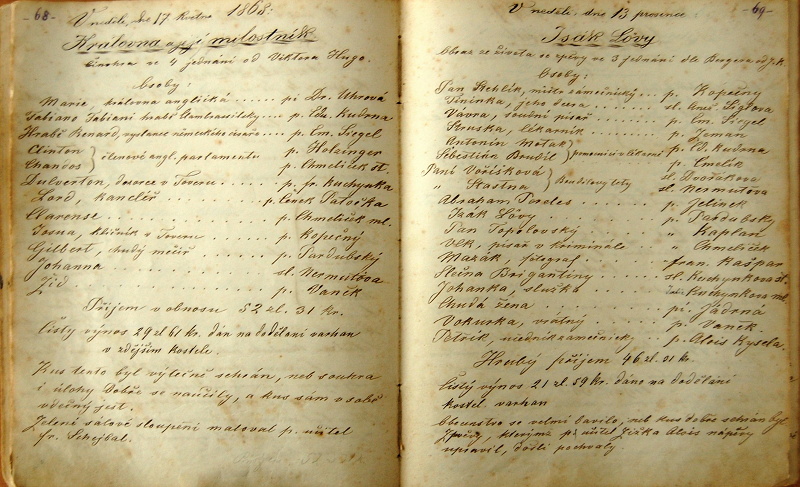 -68-
V neděli, dne 17 května 1868.
Královna a její milostník
činohra ve 4 jednání od Viktora Hugo.
Osoby:
Marie, královna anglická ...... pí Dr. Uhrová
Fabiano Fabiani hrabě Clambrassilský... p. Ed. Kudrna
Hrabě Renard, vyslanec německého císaře... p. Em. Siegel
Clinton } členové angl. parlamentu p. Holzinger
Chandos p. Chmelíček st.
Dulverton, dozorce v Toweru ... p. fr. Kuchynka
Lord, kancléř ......... p. Čeněk Patočka
Clarense ............ p. Chmelíček ml.
Josua, klíčník v Toweru ... p. Kopečný
Gilbert, chudý mečíř ... p. Pardubský
Johanna ............ sl. Nermutova
Žid ............... p. Vaněk
Příjem v obnosu 52 zl. 31 kr.
čistý výnos 29 zl 61 kr. dán na dodělání varhan
v zdějším kostele.
Kus tento byl výtečně sehrán, neb souhra
i úlohy dobře se naučily, a kus sám v sobě
vděčný jest.
Zelené salové sloupění maloval p. učitel
fr. Schejbal.
-69-
V neděli, dne 13 prosince
Isák Lévy
Obraz ze života se zpěvy ve 3 jednání dle Bergera od
Osoby:
Jan Kehlík, mistr zámečnický... p. Kopečný
Tininka, jeho dcera ....... sl.
Vavra, soudní písař ....... p. Em. Siegel
Struska, lékárník ......... p. Zeman
Antonín Moták } p. Ed. Kudrna
Šebestián Brudil v lékárně p. Cmelik
Paní Voříšková } sl. Dvořáková
" Šťastna sl. Nermutova
Abraham Pardes ...... p. Jelínek
Izák Lévy ........ p. Pardubský
Pan Topolovský ..... " Kaplan
Vlk, písař v kriminále " Chmelíček
Mazák, fotograf ..... fran. Kašpar
Slečna Brigantiny ... sl. Kuchynkova st.
Johanka, služka ..... Kuchynkova ml.
Chudá žena ........ pí. Jadrná
Vokurka, vrátný ..... p. Vaněk.
Petřík, učedník zámečnický... p. Alois Kysela.
Hrubý příjem 46 zl. 01 kr.
čistý výnos 21 zl. 59 kr. dáno na dodělání
kostel. varhan
Obecenstvo se velmi bavilo, neb kus dobře sehrán byl
Zpěvy, kterýmž p. učitel Zižka Alois nápěvy
upravil, došli pochvaly.